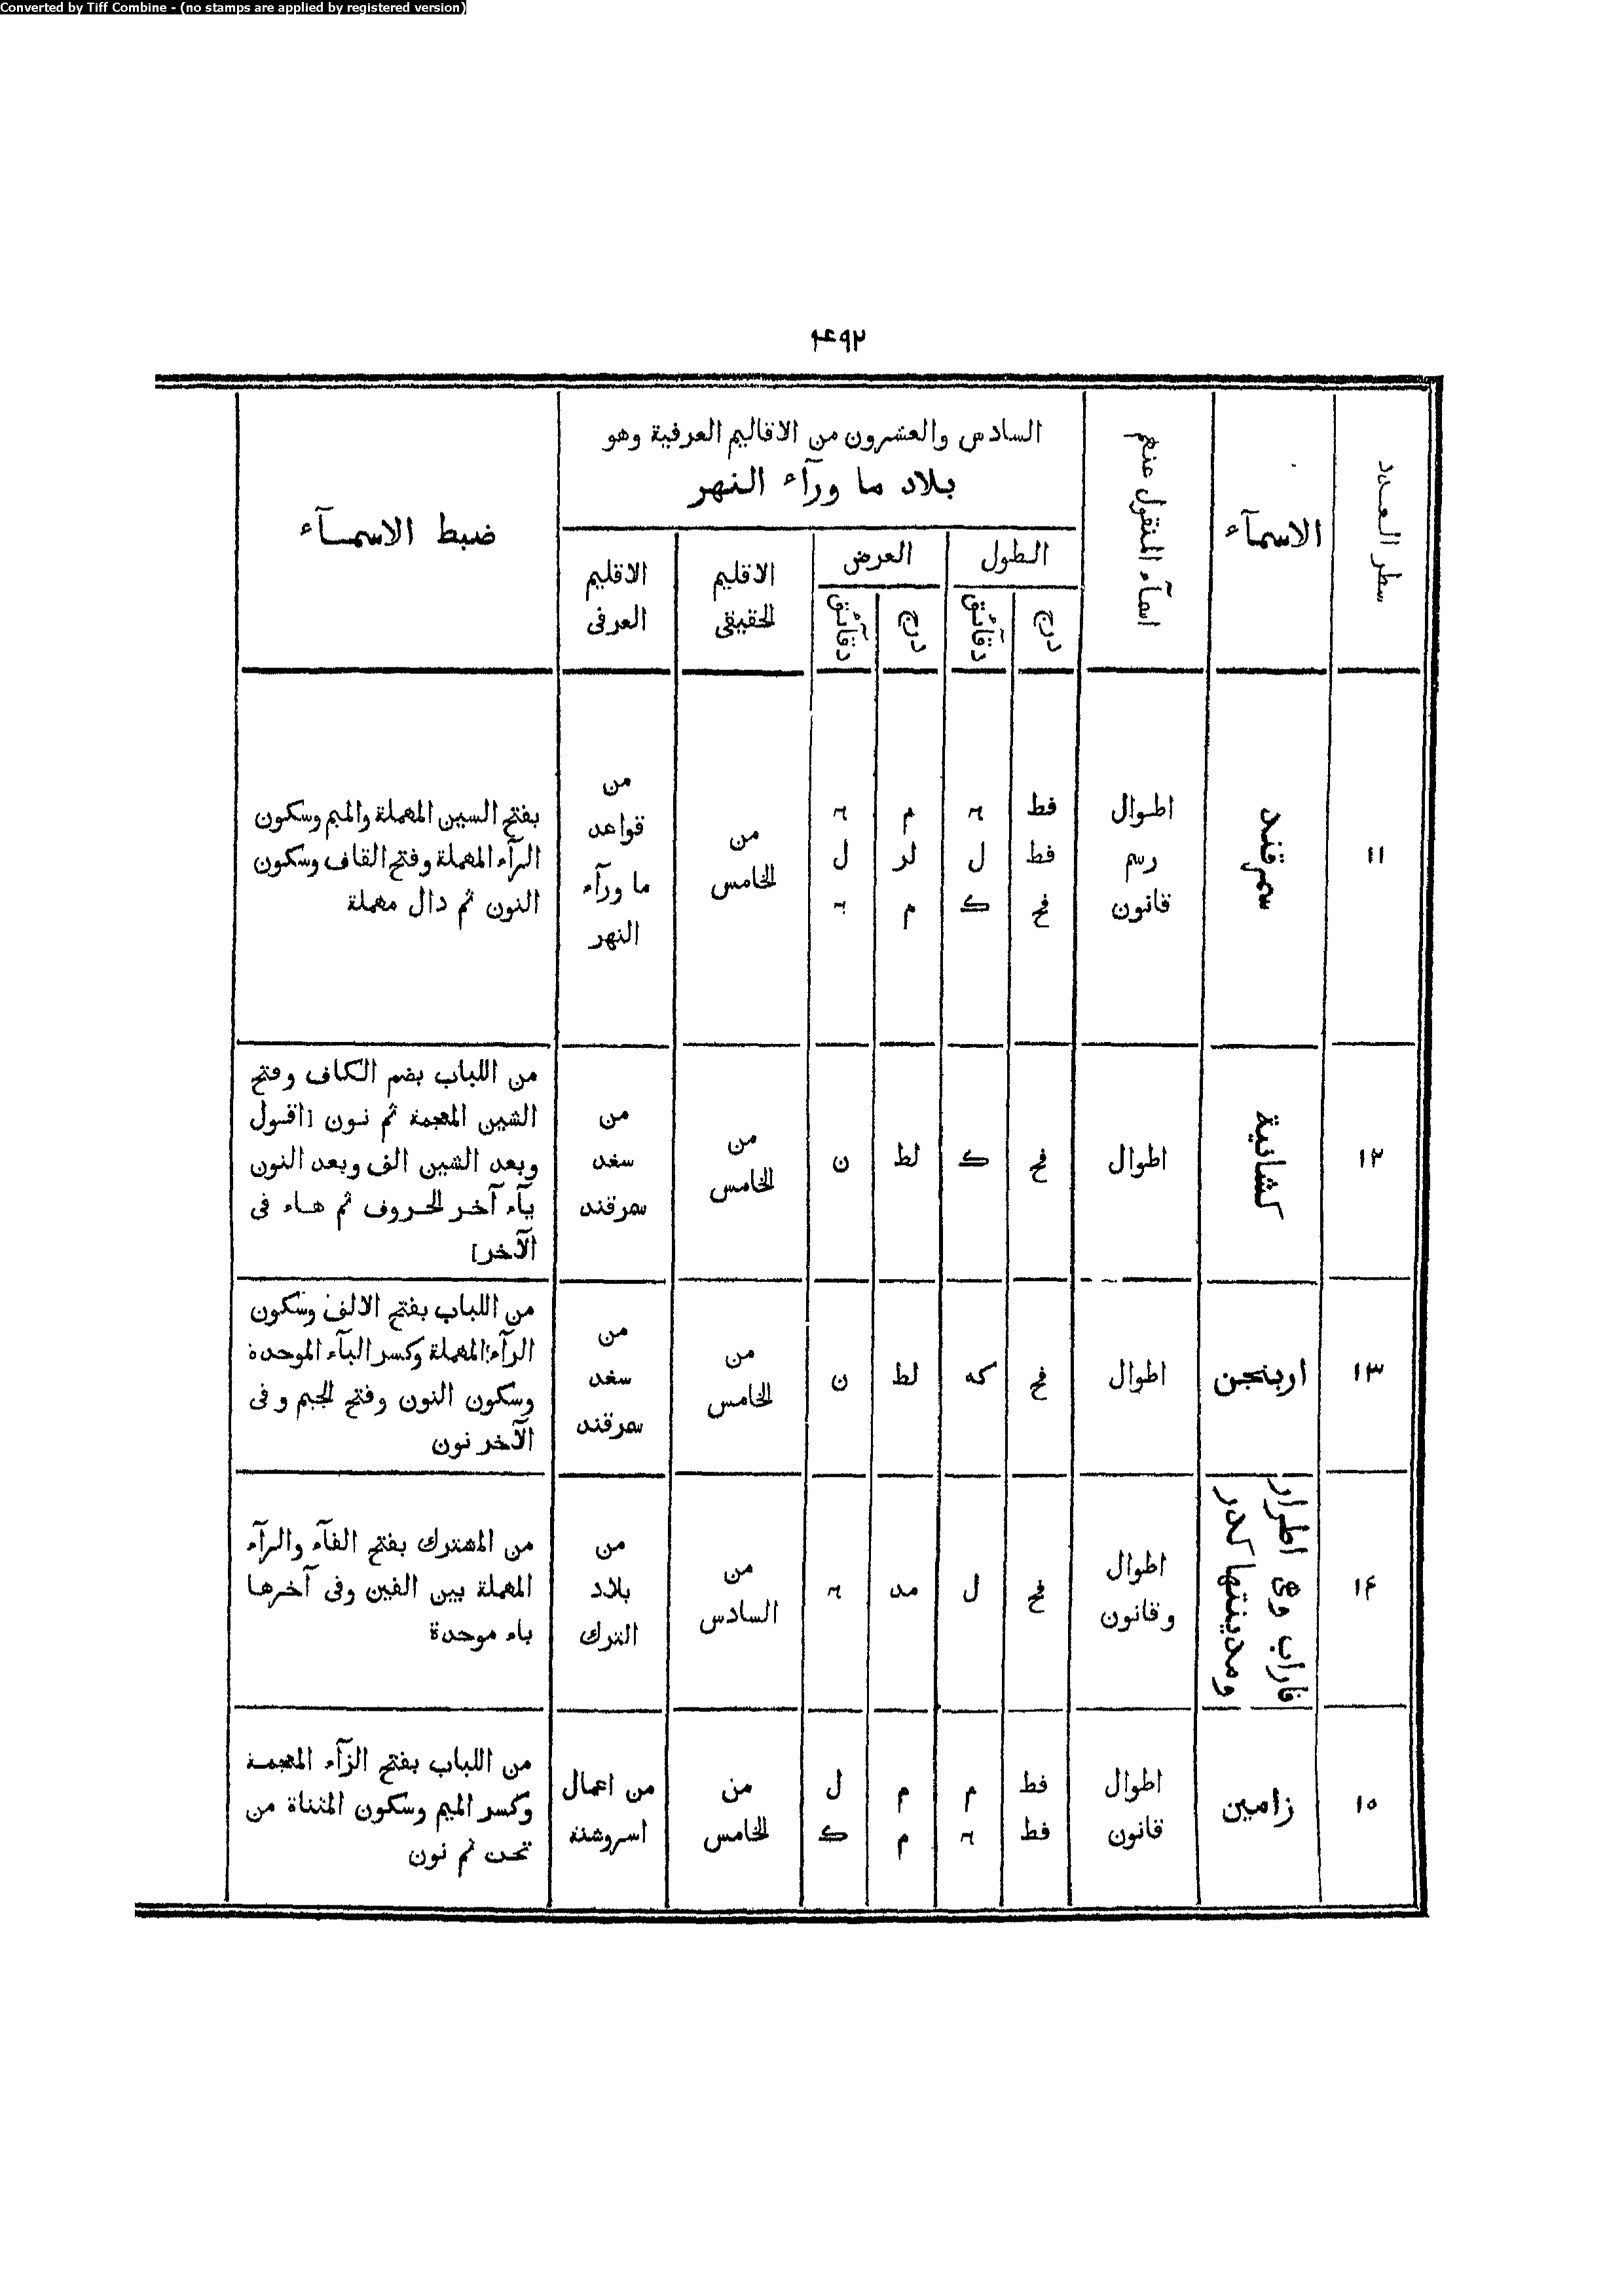 Converted by Tiff Combine - (no stamps are applied by registered version)
۴۹۲
سطر العدد
الاسمآء
اسمآء المنقول عنهم
السادس والعشرون من الاقاليم العرفية وهو
بلاد ما ورآء النهر
الطول
العرض
درج
دقآئق
درج
دقآئق
الاقليم
الحقيقى
الاقليم
العرفى
ضبط الاسمآء
١١
سمرقند
اطوال
رسم
قانون
فط
فط
فح
ل
ك
م
لز
م
ل
من
الخامس
من
قواعد
ما ورآء
النهر
بفتح السين المهملة والميم وسكون
الرآء المهملة وفتح القاف وسكون
النون ثم دال مهملة
١٢
كشانية
اطوال
فح
ك
لط
ن
من
الخامس
من
سغد
سمرقند
من اللباب بضم الكاف وفتح
الشين المعجمة ثم نون [اقول
وبعد الشين الف وبعد النون
يآء آخر الحروف ثم هاء فى
الآخر]
١٣
اربنجن
اطوال
فح
كه
لط
ن
من
الخامس
من
سغد
سمرقند
من اللباب بفتح الالف وسكون
الرآء المهملة وكسر البآء الموحدة
وسكون النون وفتح الجيم وفى
الآخر نون
١۴
فاراب وهى اطرار
ومدينتها كدر
اطوال
وقانون
فح
ل
مد
من
السادس
من
بلاد
الترك
من المشترك بفتح الفآء والرآء
المهملة بين الفين وفى آخرها
باء موحدة
١٥
زامين
اطوال
قانون
فط
فط
م
م
م
ل
ك
من
الخامس
من اعمال
اسروشنة
من اللباب بفتح الزآء المعجمة
وكسر الميم وسكون المثناة من
تحت ثم نون